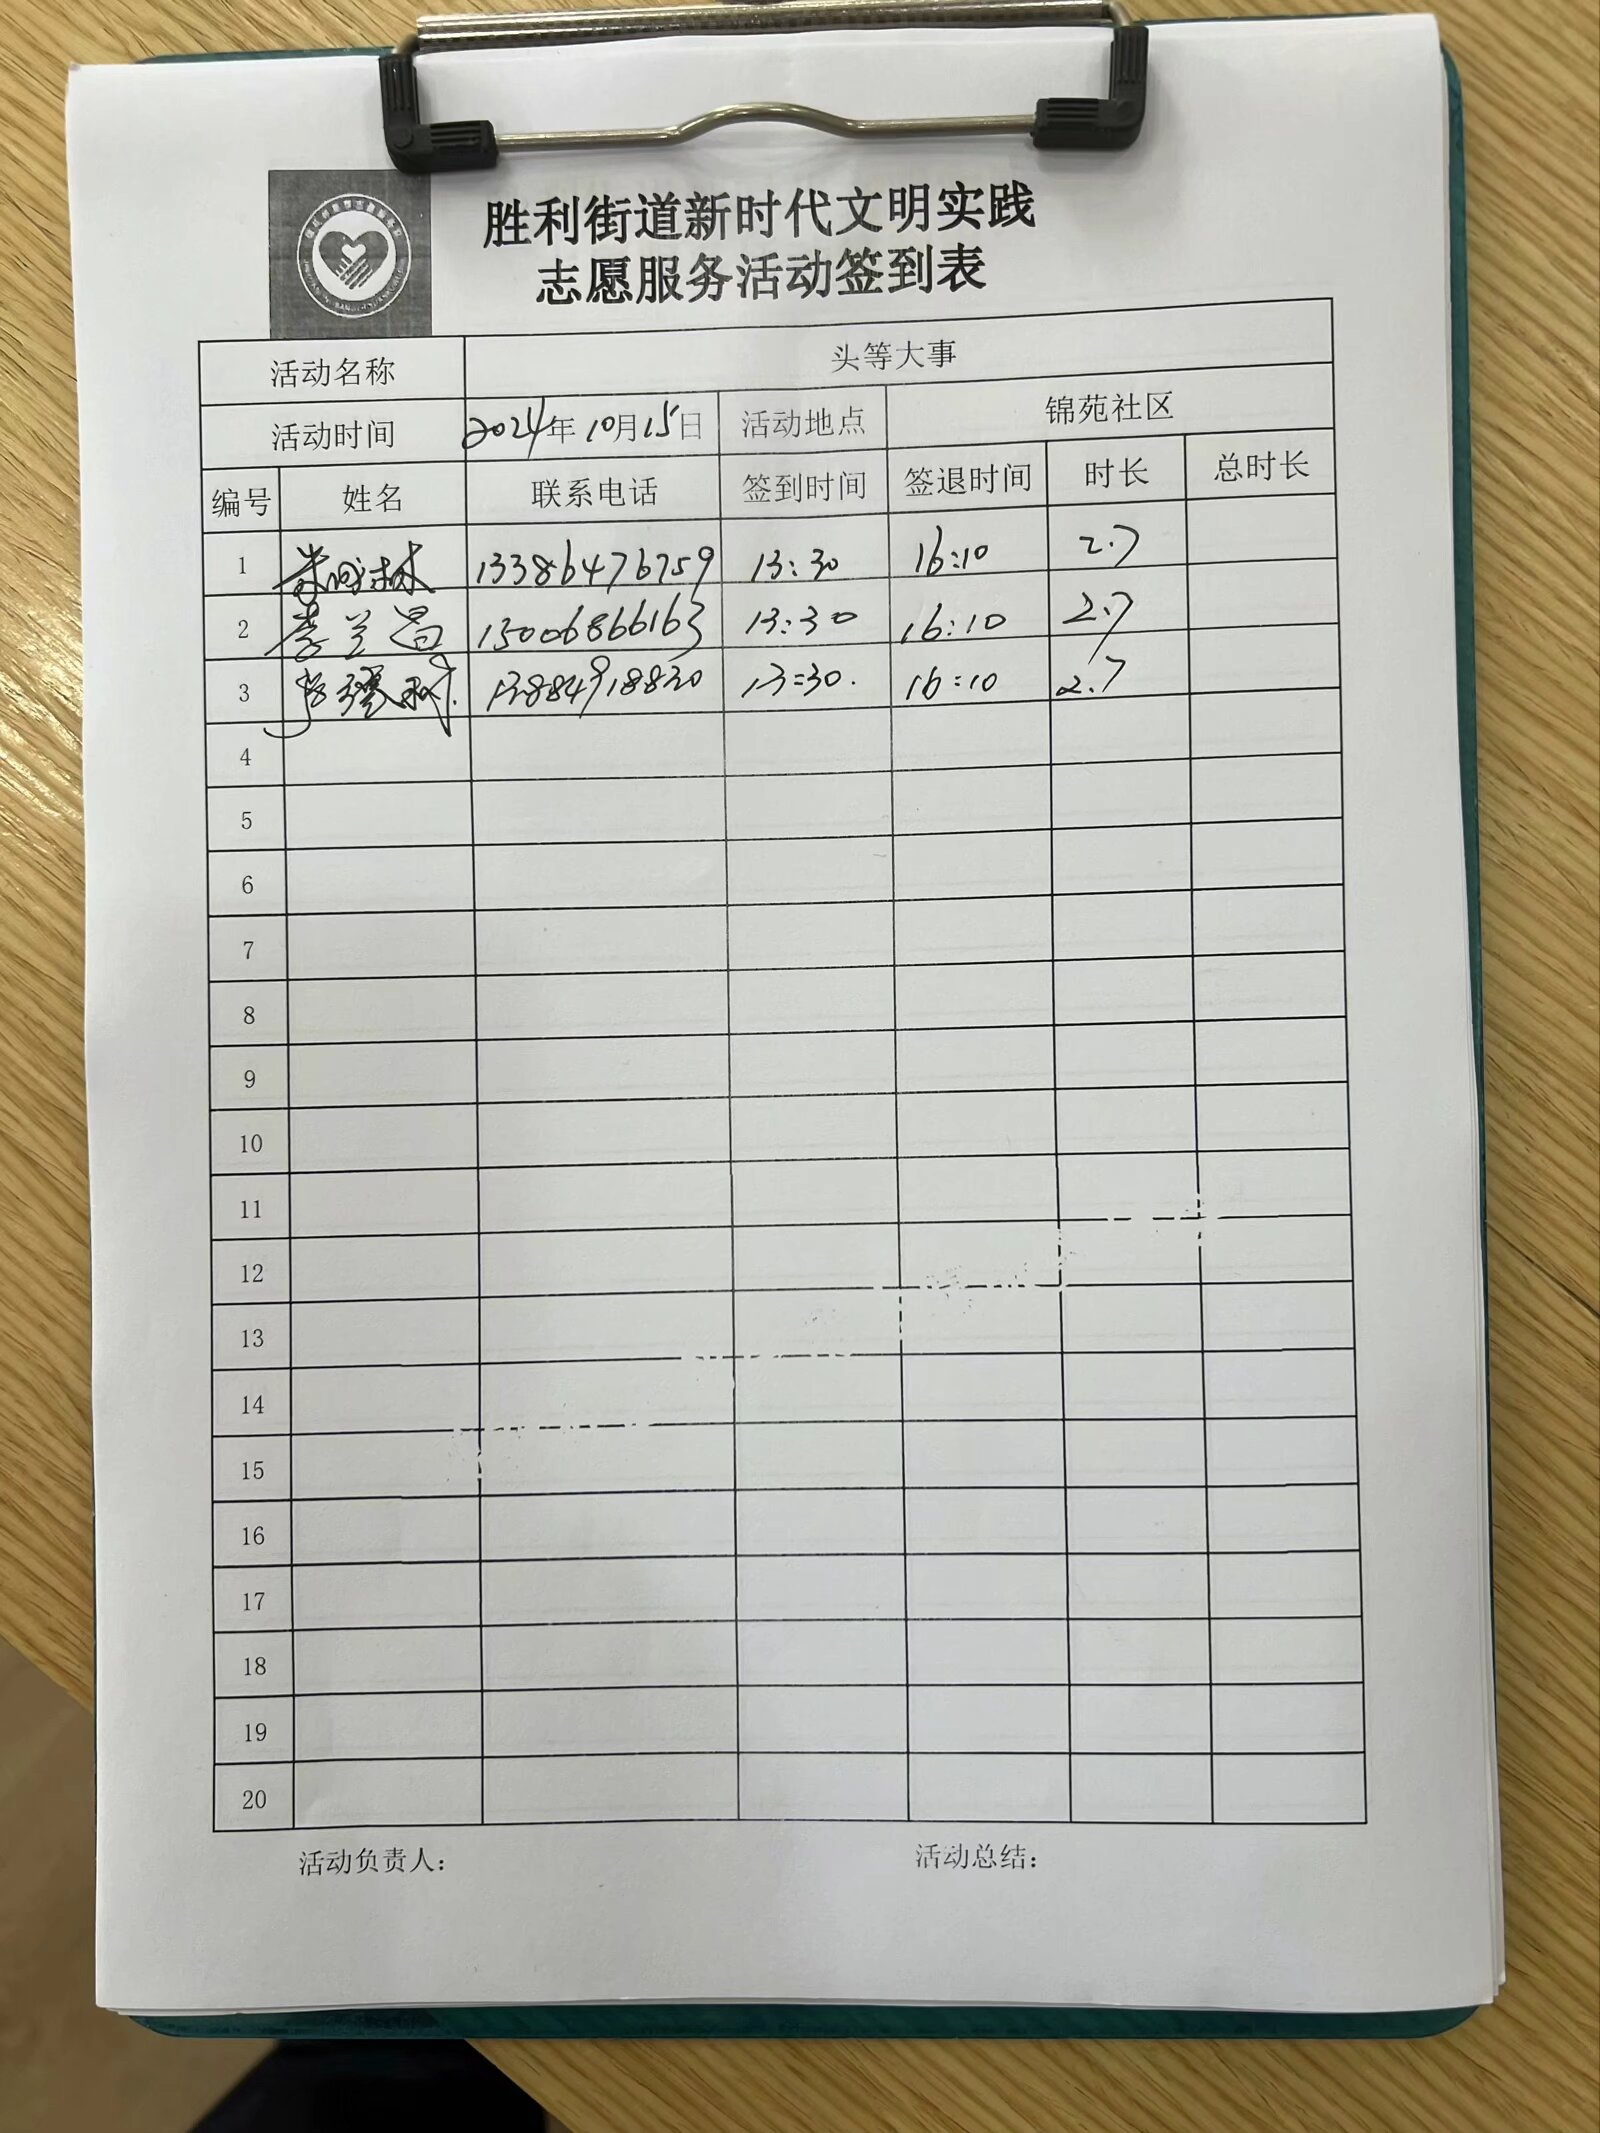 胜利街道新时代文明实践
志愿服务活动签到表
活动名称 头等大事
活动时间 2024年10月15日 活动地点 锦苑社区
编号 姓名 联系电话 签到时间 签退时间 时长 总时长
1 13386476759 13:30 16:10 2.7
2 李兰昌 15006866163 13:30 16:10 2.7
3 13884918830 13:30. 16:10 2.7
4
5
6
7
8
9
10
11
12
13
14
15
16
17
18
19
20
活动负责人： 活动总结：